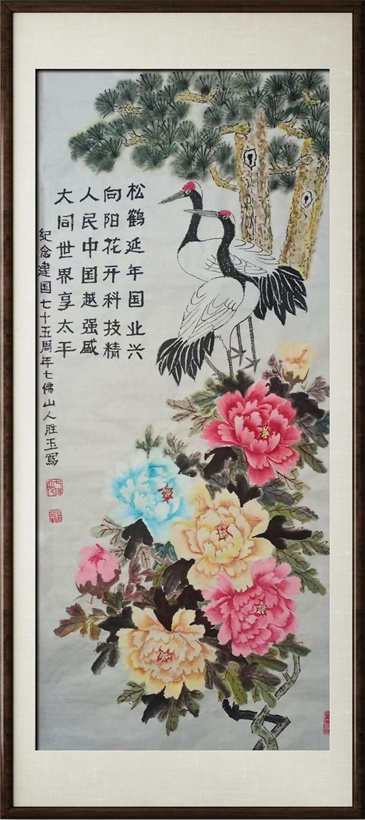 松鹤延年国业兴
向阳花开科技精
人民中国越强盛
大同世界享太平
纪念建国七十五周年七佛山人胜玉写